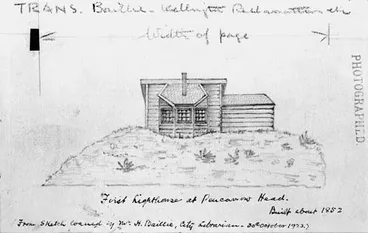 TRANS. Baillie - Wellington
Width of page
PHOTOGRAPHED.
First Lighthouse at Pencarrow Head.
Built about 1852
From sketch loaned by Mr. H. Baillie, City Librarian - 20th October 1922.)